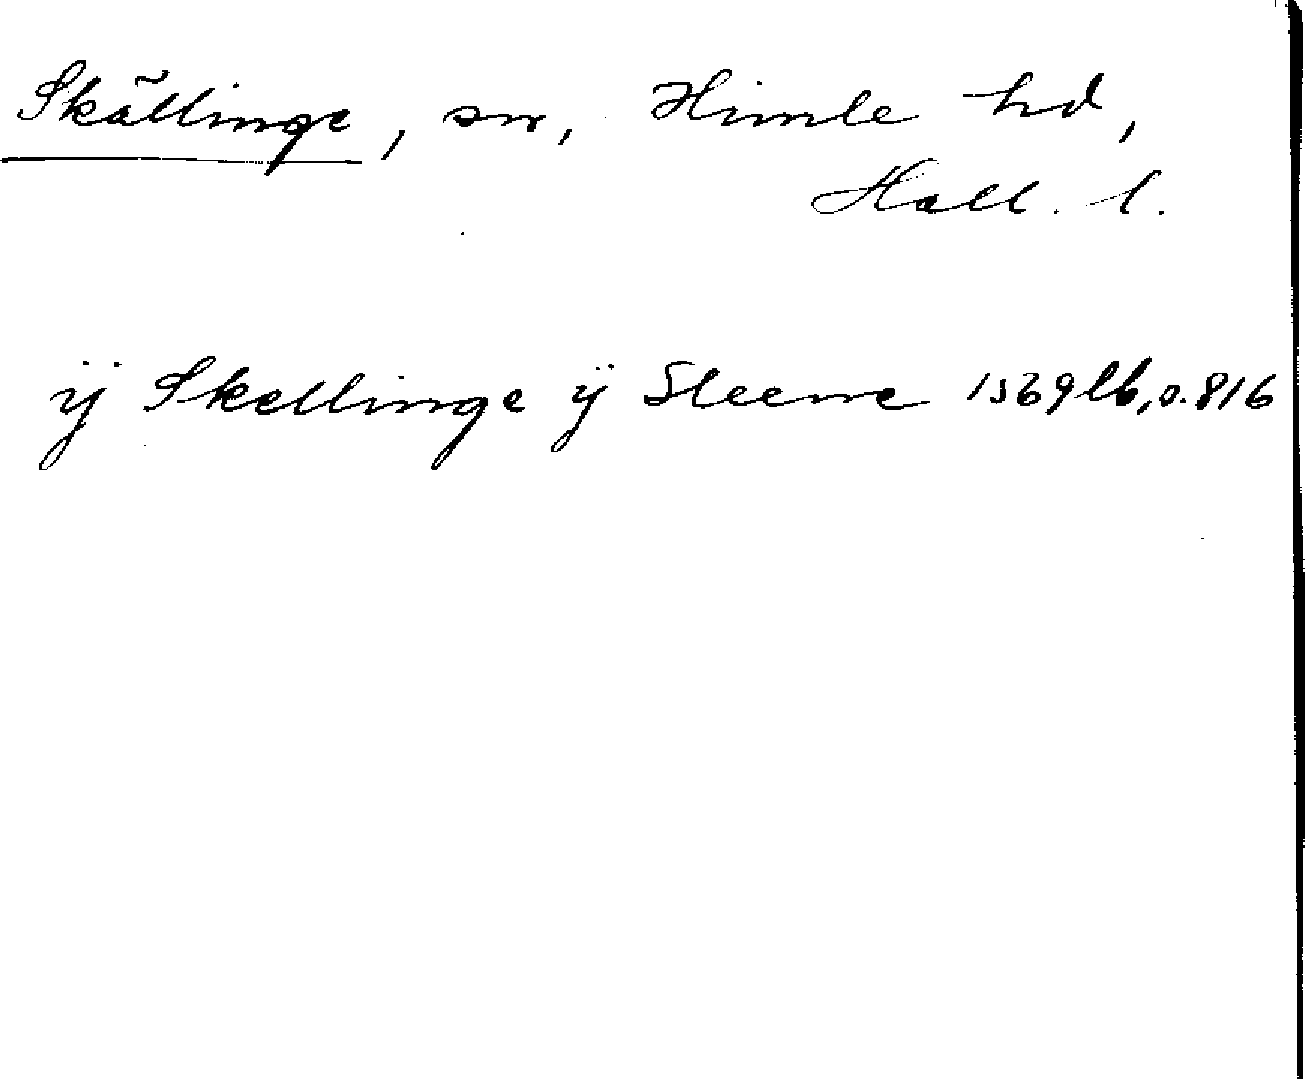 Skällinge, sn, Himle hd,
Hall. l.
ij Skellinge ij Sleene 1569 lb, s. 816